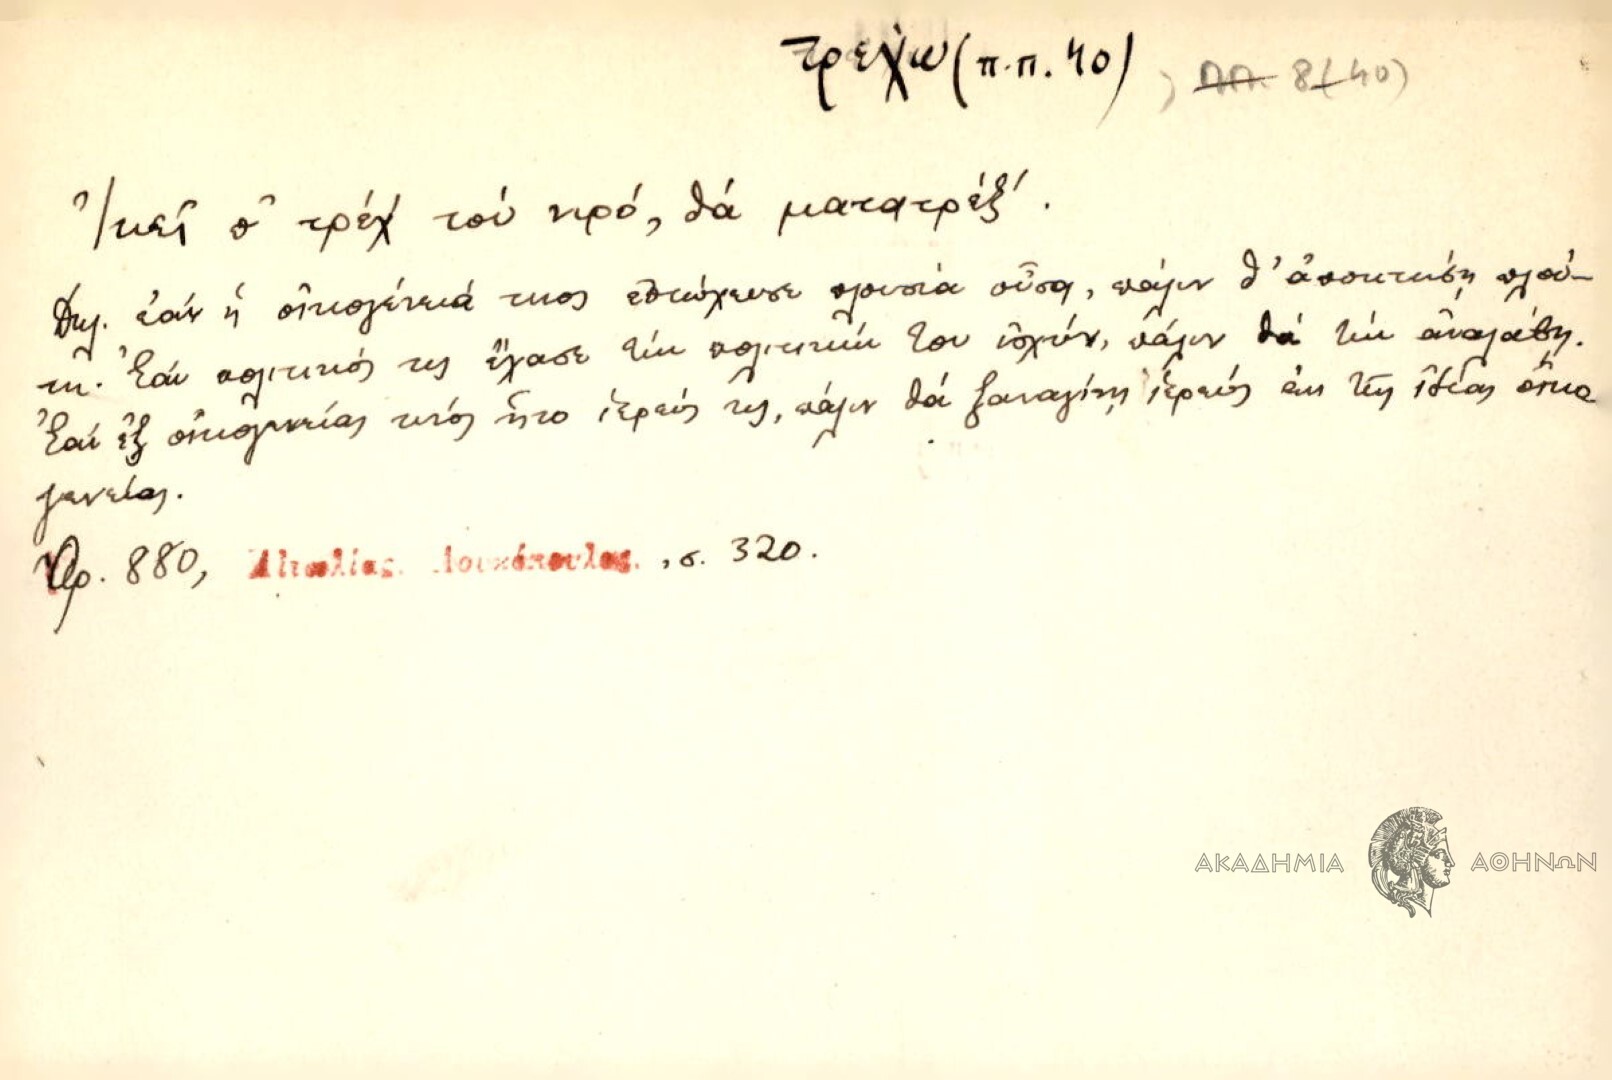 τρέχω (π.π. 40) , ΠΠ 8 (40)
Ἰκεῖ π' τρέχ' τοὺ νιρό, θά ματατρέξ'.
Δηλ. ἐάν ἡ οἰκογένειά τινος ἐπτώχευσε πλουσία οὖσα, πάλιν θ' ἀποκτήσῃ πλού-
τη. Ἐάν πολιτικός τις ἔχασε τὴν πολιτικήν του ἰσχύν, πάλιν θά τὴν ἀναλάβῃ.
Ἐάν ἐξ οἰκογενείας τινός ἦτο ἱερεύς τις, πάλιν θά ξαναγίνῃ ἱερεύς ἐκ τῆς ἰδίας οἰκο
γενείας.
Ἀρ. 880, Αἰτωλίας. Λουκόπουλος. , σ. 320.
ΑΚΑΔΗΜΙΑ ΑΘΗΝΩΝ